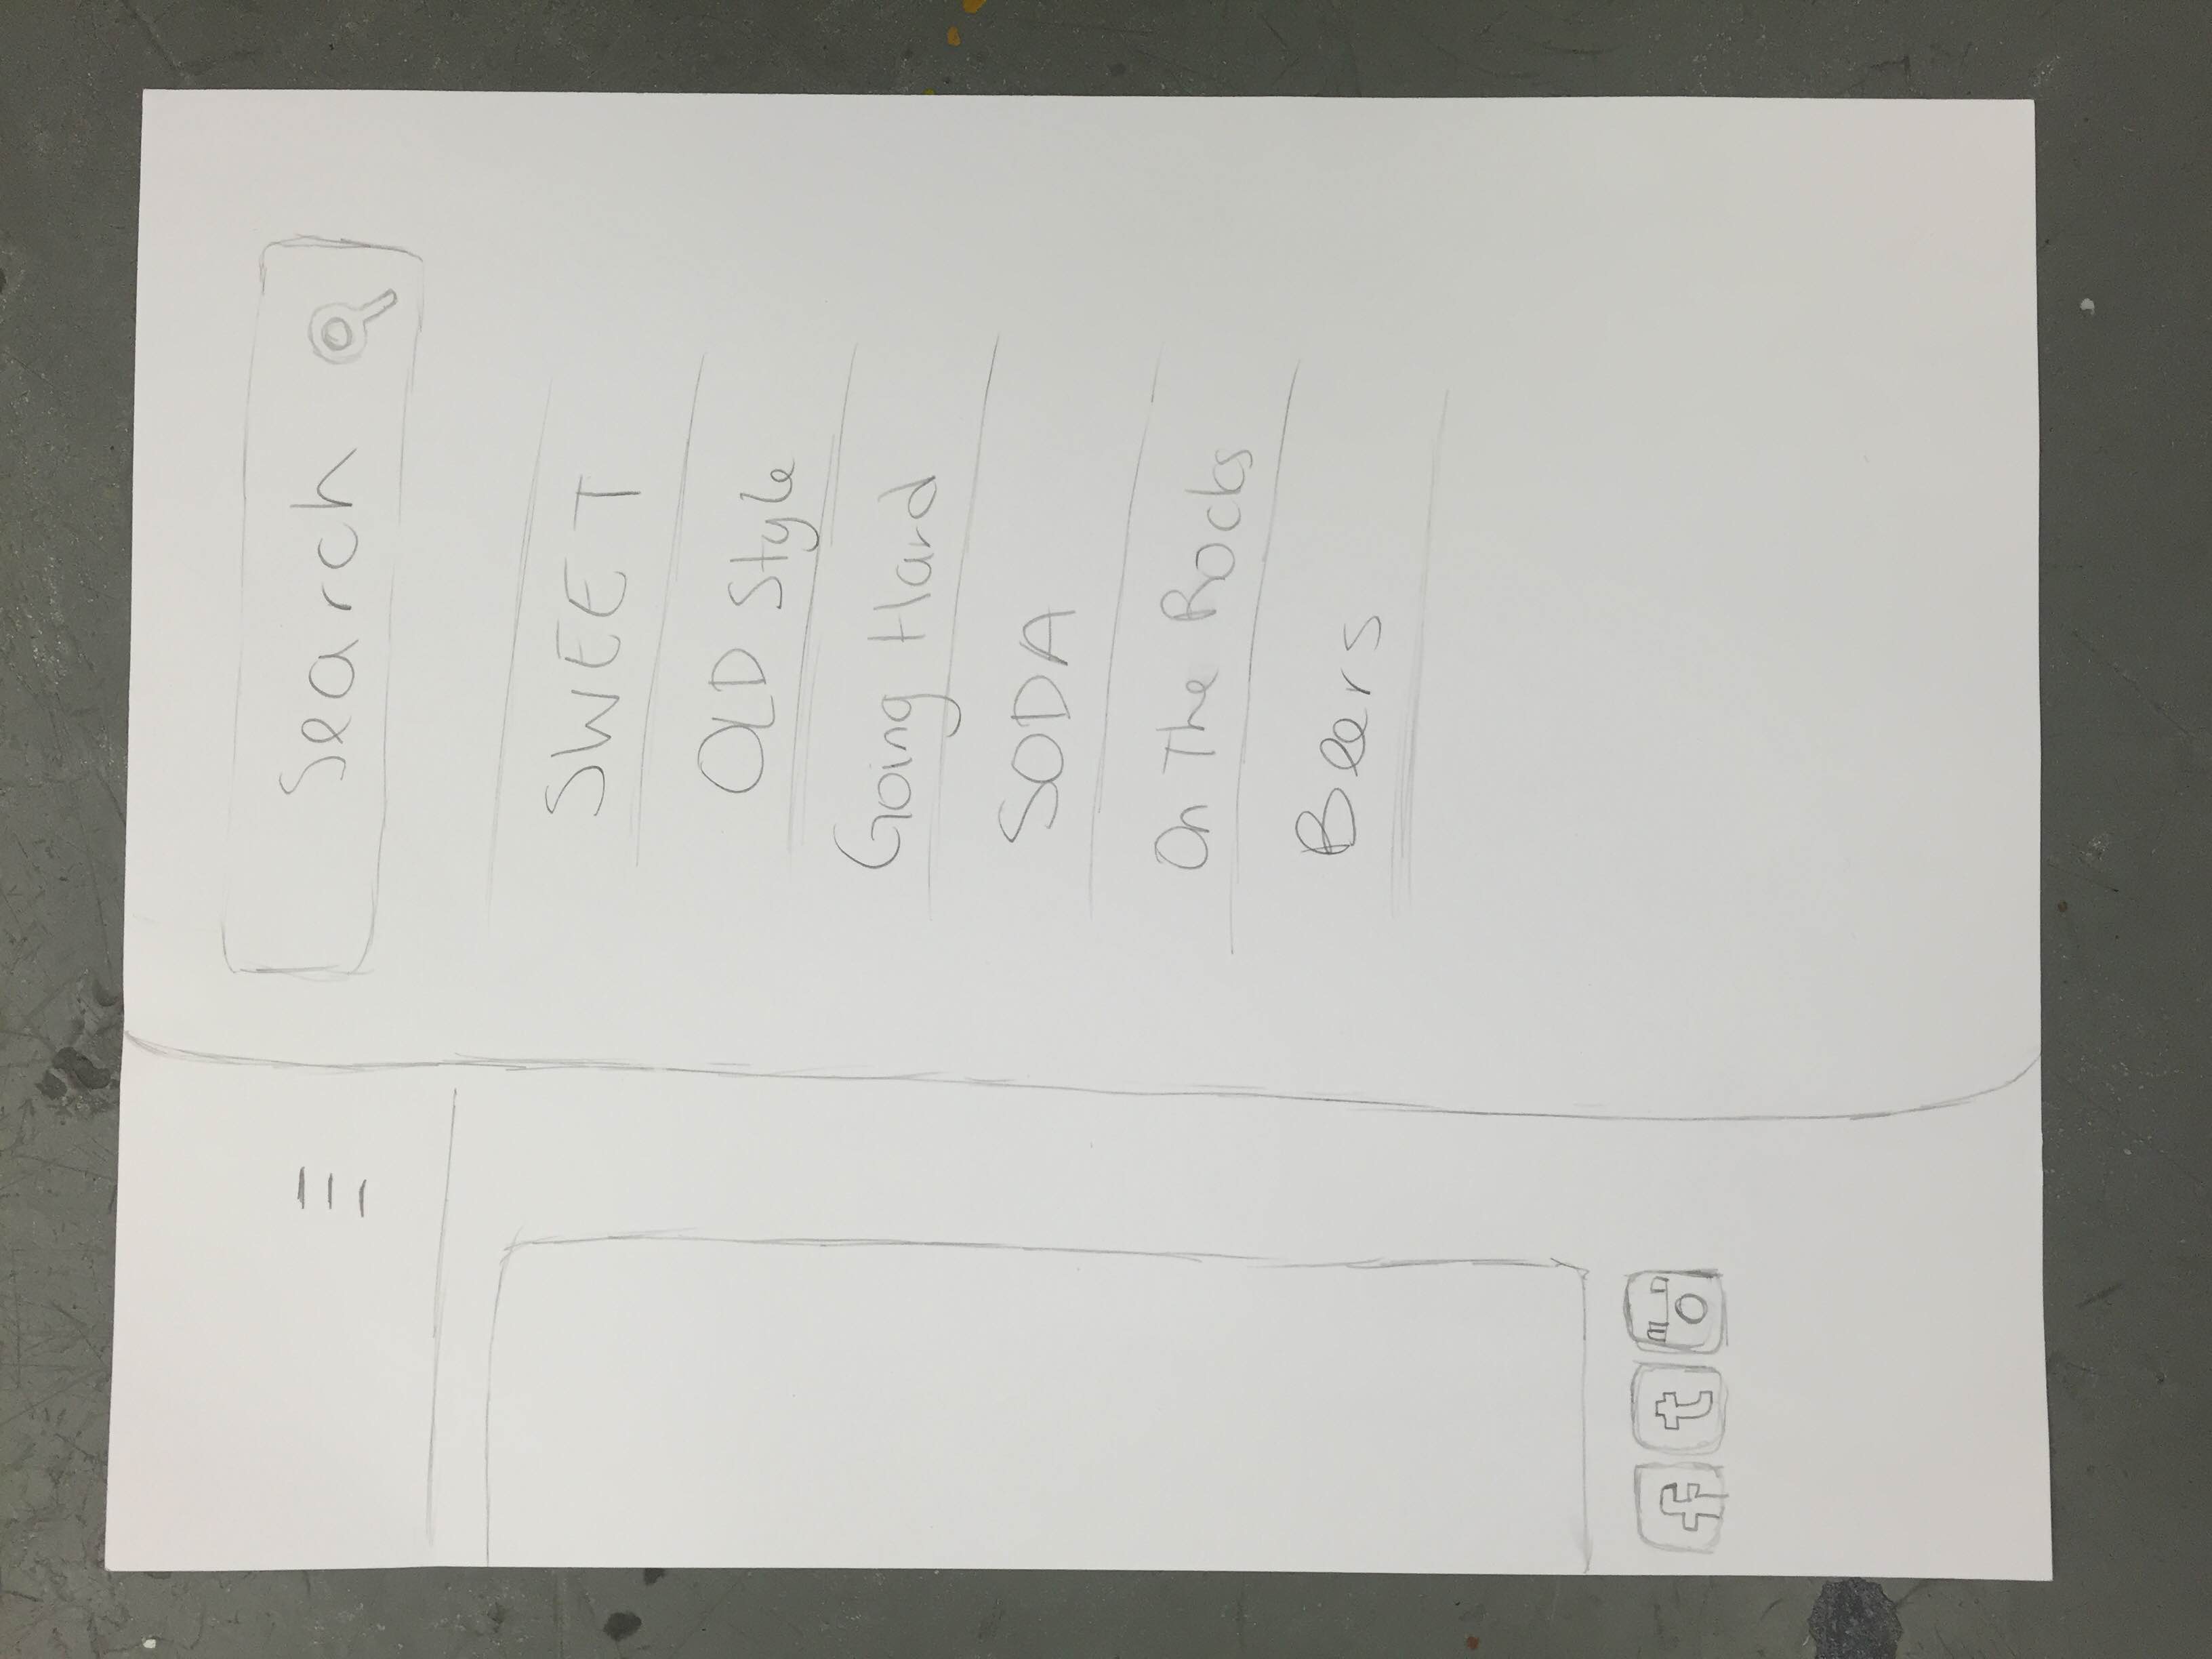 Search
SWEET
OLD Style
Going Hard
SODA
On The Rocks
Beers
f t